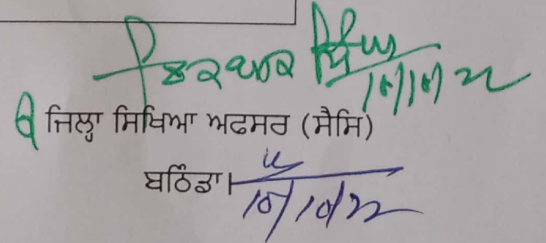 10/10/22
ਜਿਲ੍ਹਾ ਸਿਖਿਆ ਅਫਸਰ (ਸੈਸਿ)
ਬਠਿੰਡਾ।
10/10/22